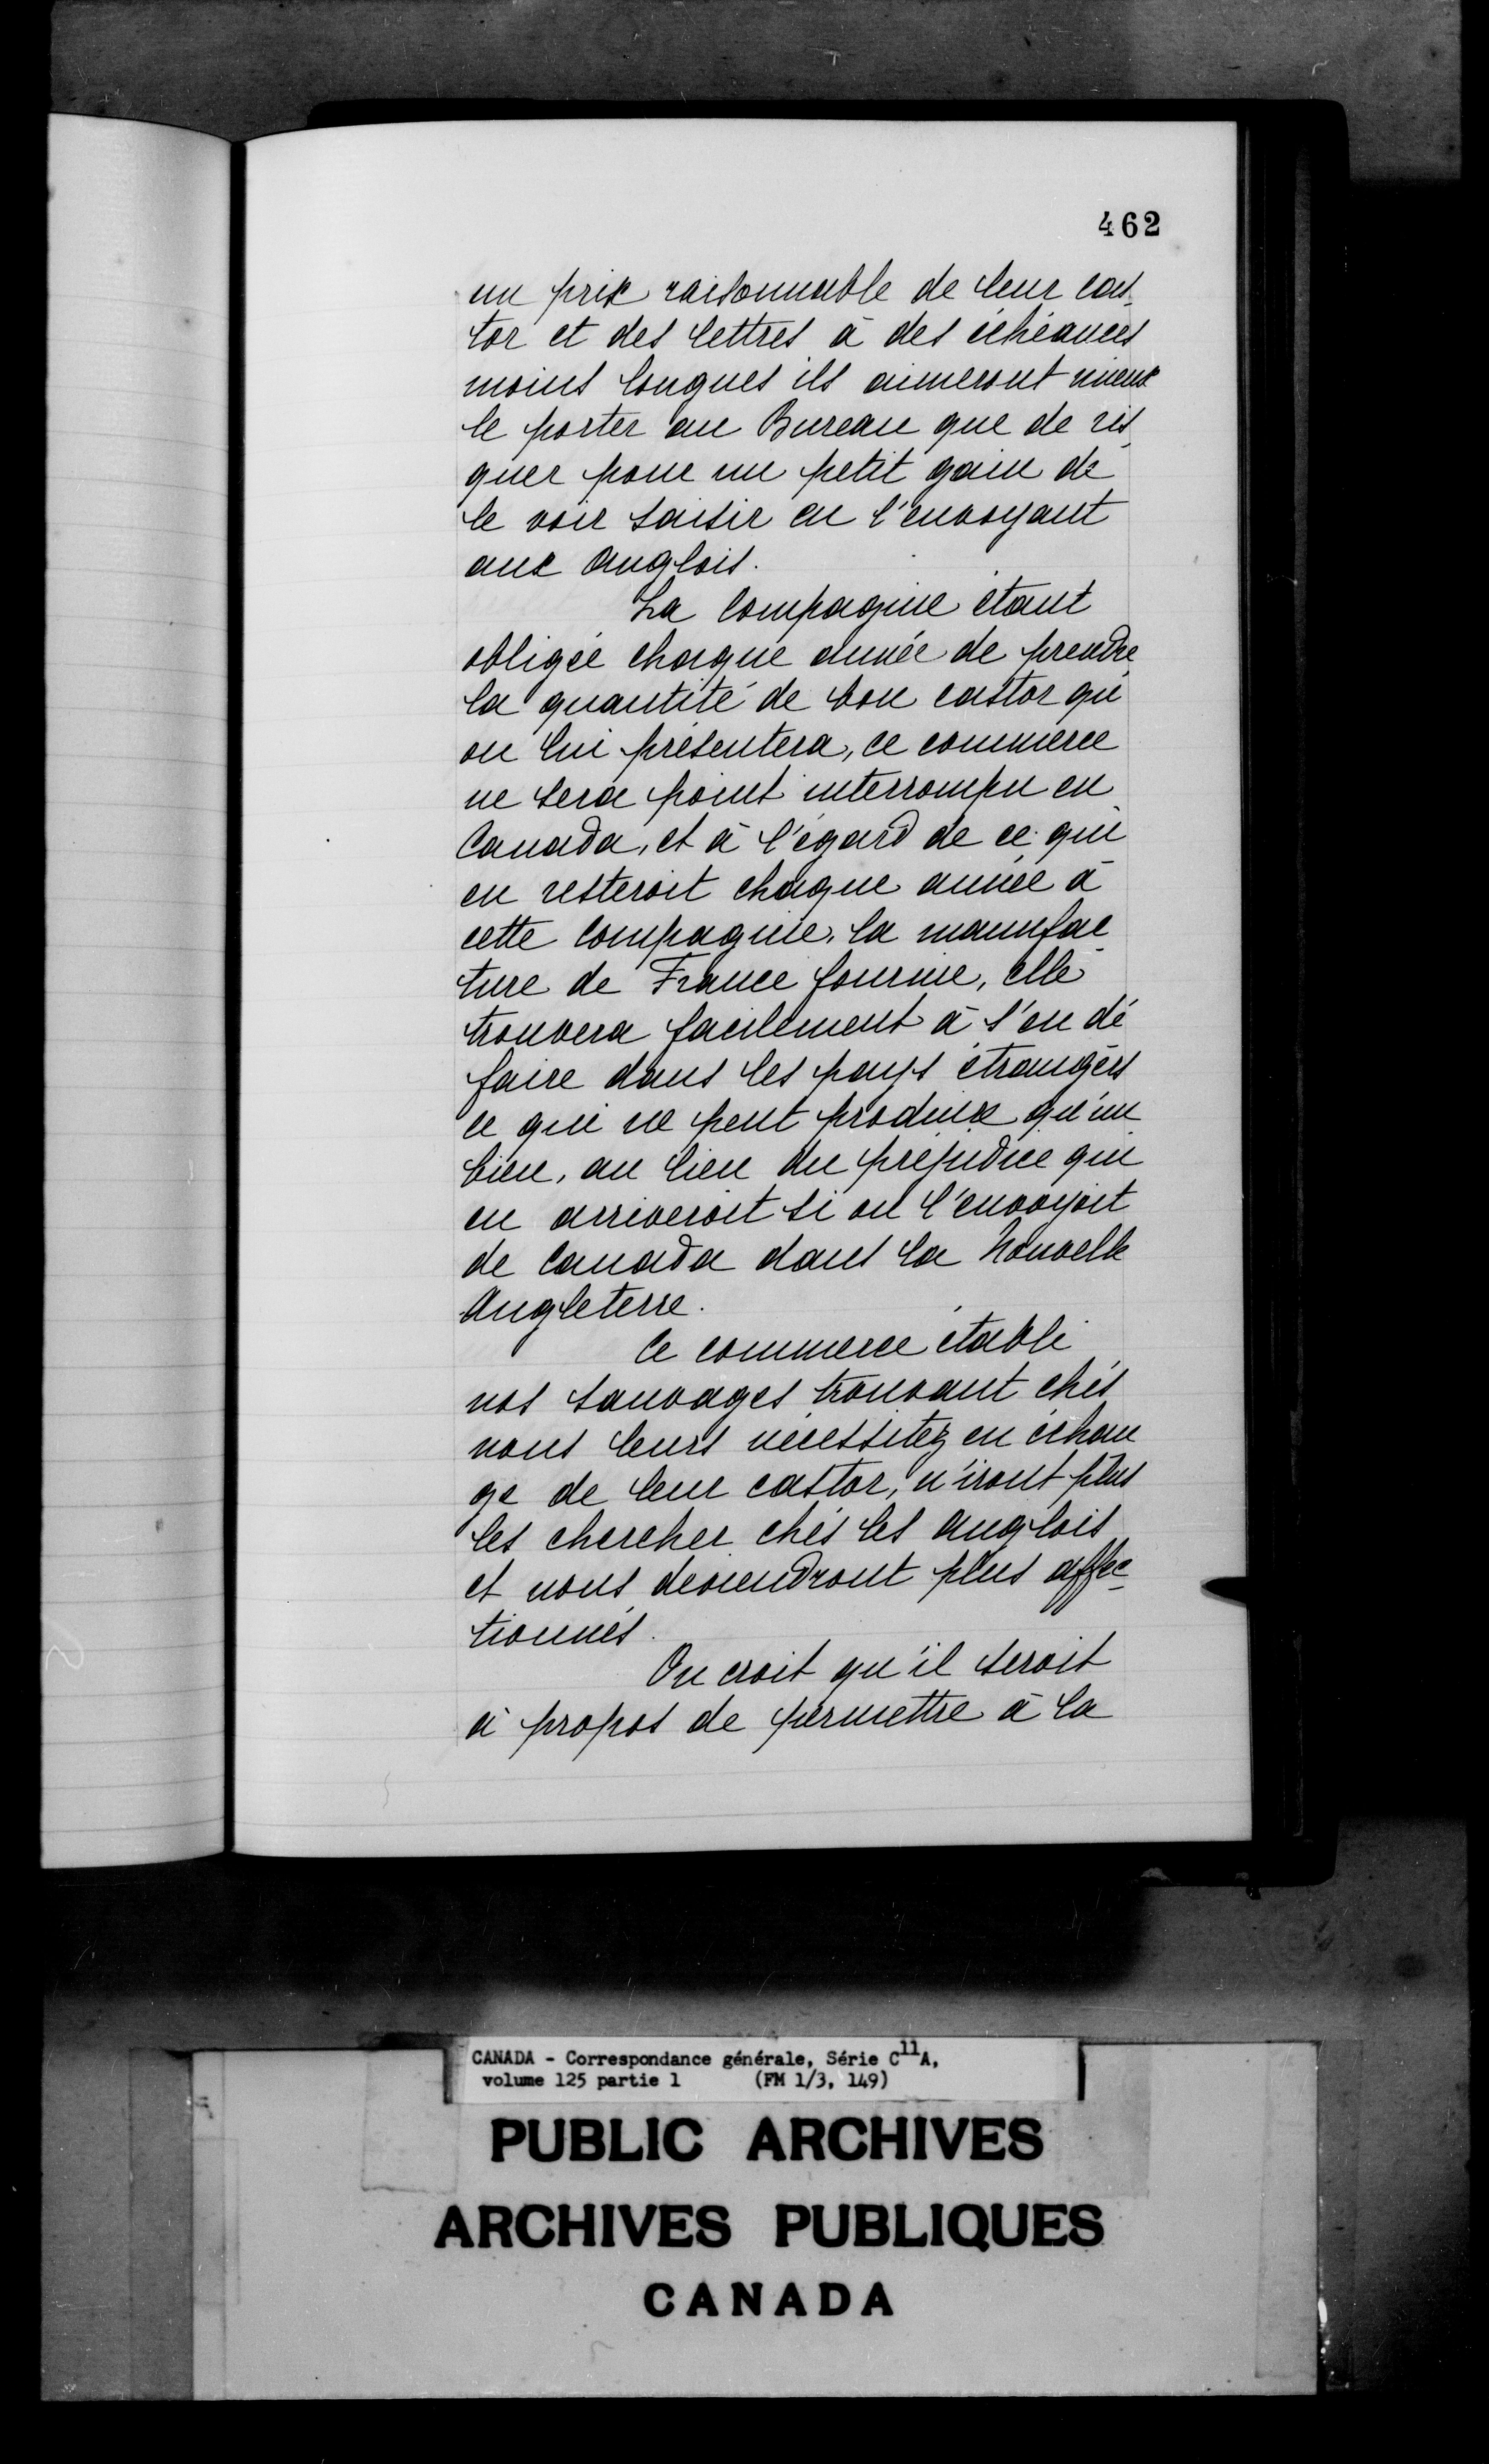 462
un prix raisonnable de leur cas-
tor et des lettres à des échéances
moins longues ils aimeront mieux
le porter au Bureau que de ris
quer pour un petit gain de
le voir saisir en l'envoyant
aux Anglois.
La Compagnie étant
obligée chaque année de prendre
la quantité de bon castor qu'
on lui présentera, ce commerce
ne sera point interrompu en
Canada, et à l'égard de ce qui
en resteroit chaque année à
cette Compagnie, la manufac
ture de France fournie, elle
trouvera facilement à s'en dé
faire dans les pays étrangers
ce qui ne peut produire qu'un
bien, au lieu du préjudice qui
en arriveroit si on l'envoyoit
de Canada dans la Nouvelle
Angleterre.
Ce commerce établi
nos sauvages trouvant chés
nous leurs nécessitez en échan
ge de leur castor, n'iront plus
les chercher chés les Anglois
et nous deviendront plus affec-
tionnés.
On croit qu'il seroit
à propos de permettre à la
CANADA - Correspondance générale, Série C11A,
volume 125 partie 1 (FM 1/3, 149)
PUBLIC ARCHIVES
ARCHIVES PUBLIQUES
CANADA